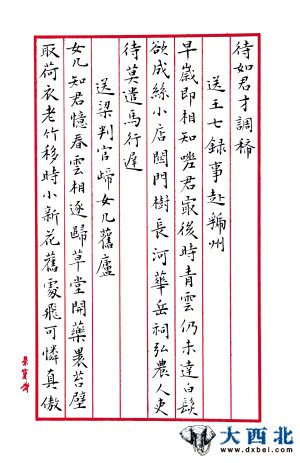 待如君才調稀
送王七録事赴虢州
早歲即相知嗟君最後時青雲仍未達白髮
欲成絲小店關門樹長河華岳祠弘農人吏
待莫遣馬行遲
送梁判官歸女几舊廬
女几知君憶春雲相逐歸草堂開藥裹苔壁
取荷衣老竹移時小新花舊處飛可憐真傲
榮寶齋
大西北
www.dxbei.com